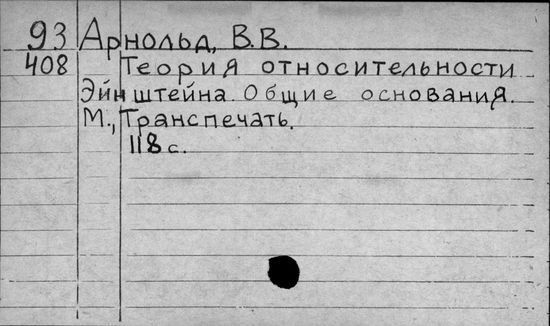 93 Арнольд, В.В.
408 Теория относительности
Эйнштейна. Общие основания.
М., Транспечать.
118 с.